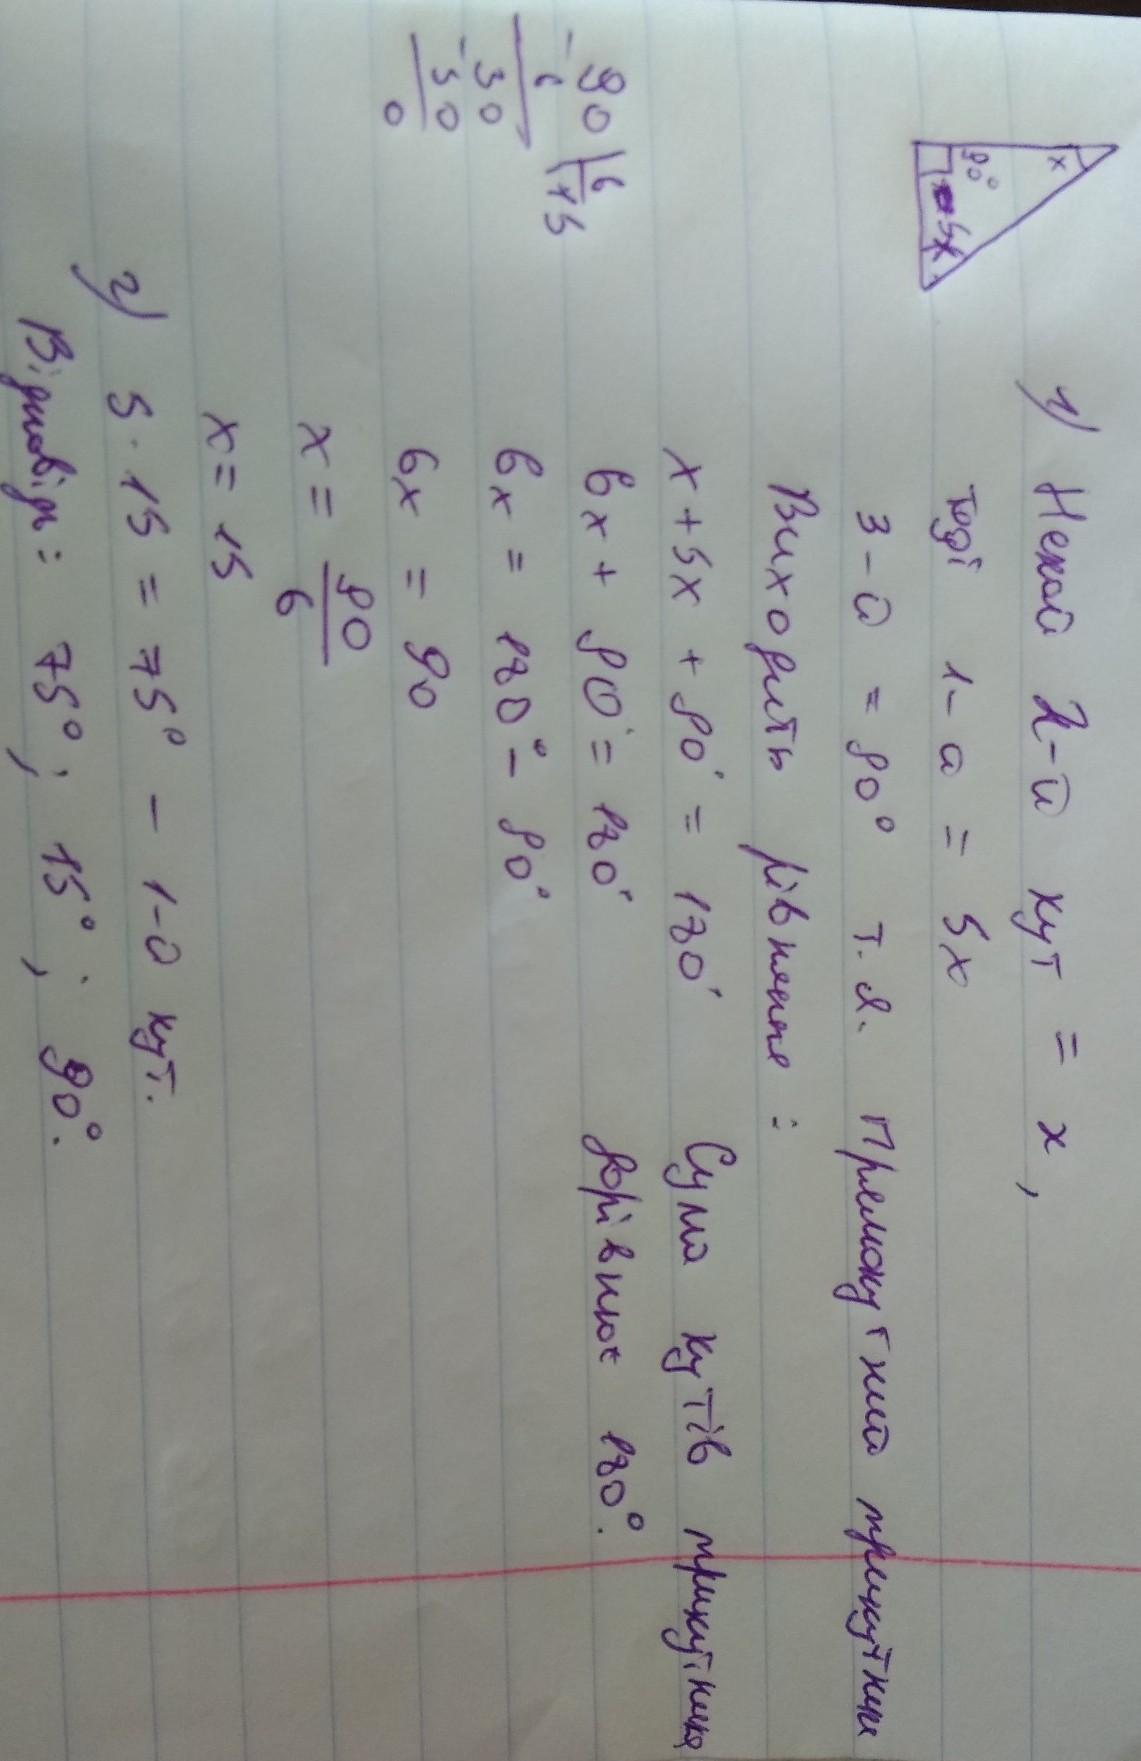 x
90°
5x
1) Нехай 2-й кут = x,
тоді 1-й = 5x
3-й = 90° т.я. Прямокутний трикутник
Виходить рівняння :
x + 5x + 90° = 180° Сума кутів трикутника
6x + 90° = 180° дорівнює 180°.
6x = 180° - 90°
6x = 90
x = 90/6
x = 15
90 | 6
- 6 15
30
- 30
0
2) 5 · 15 = 75° - 1-й кут.
Відповідь: 75°; 15°; 90°.